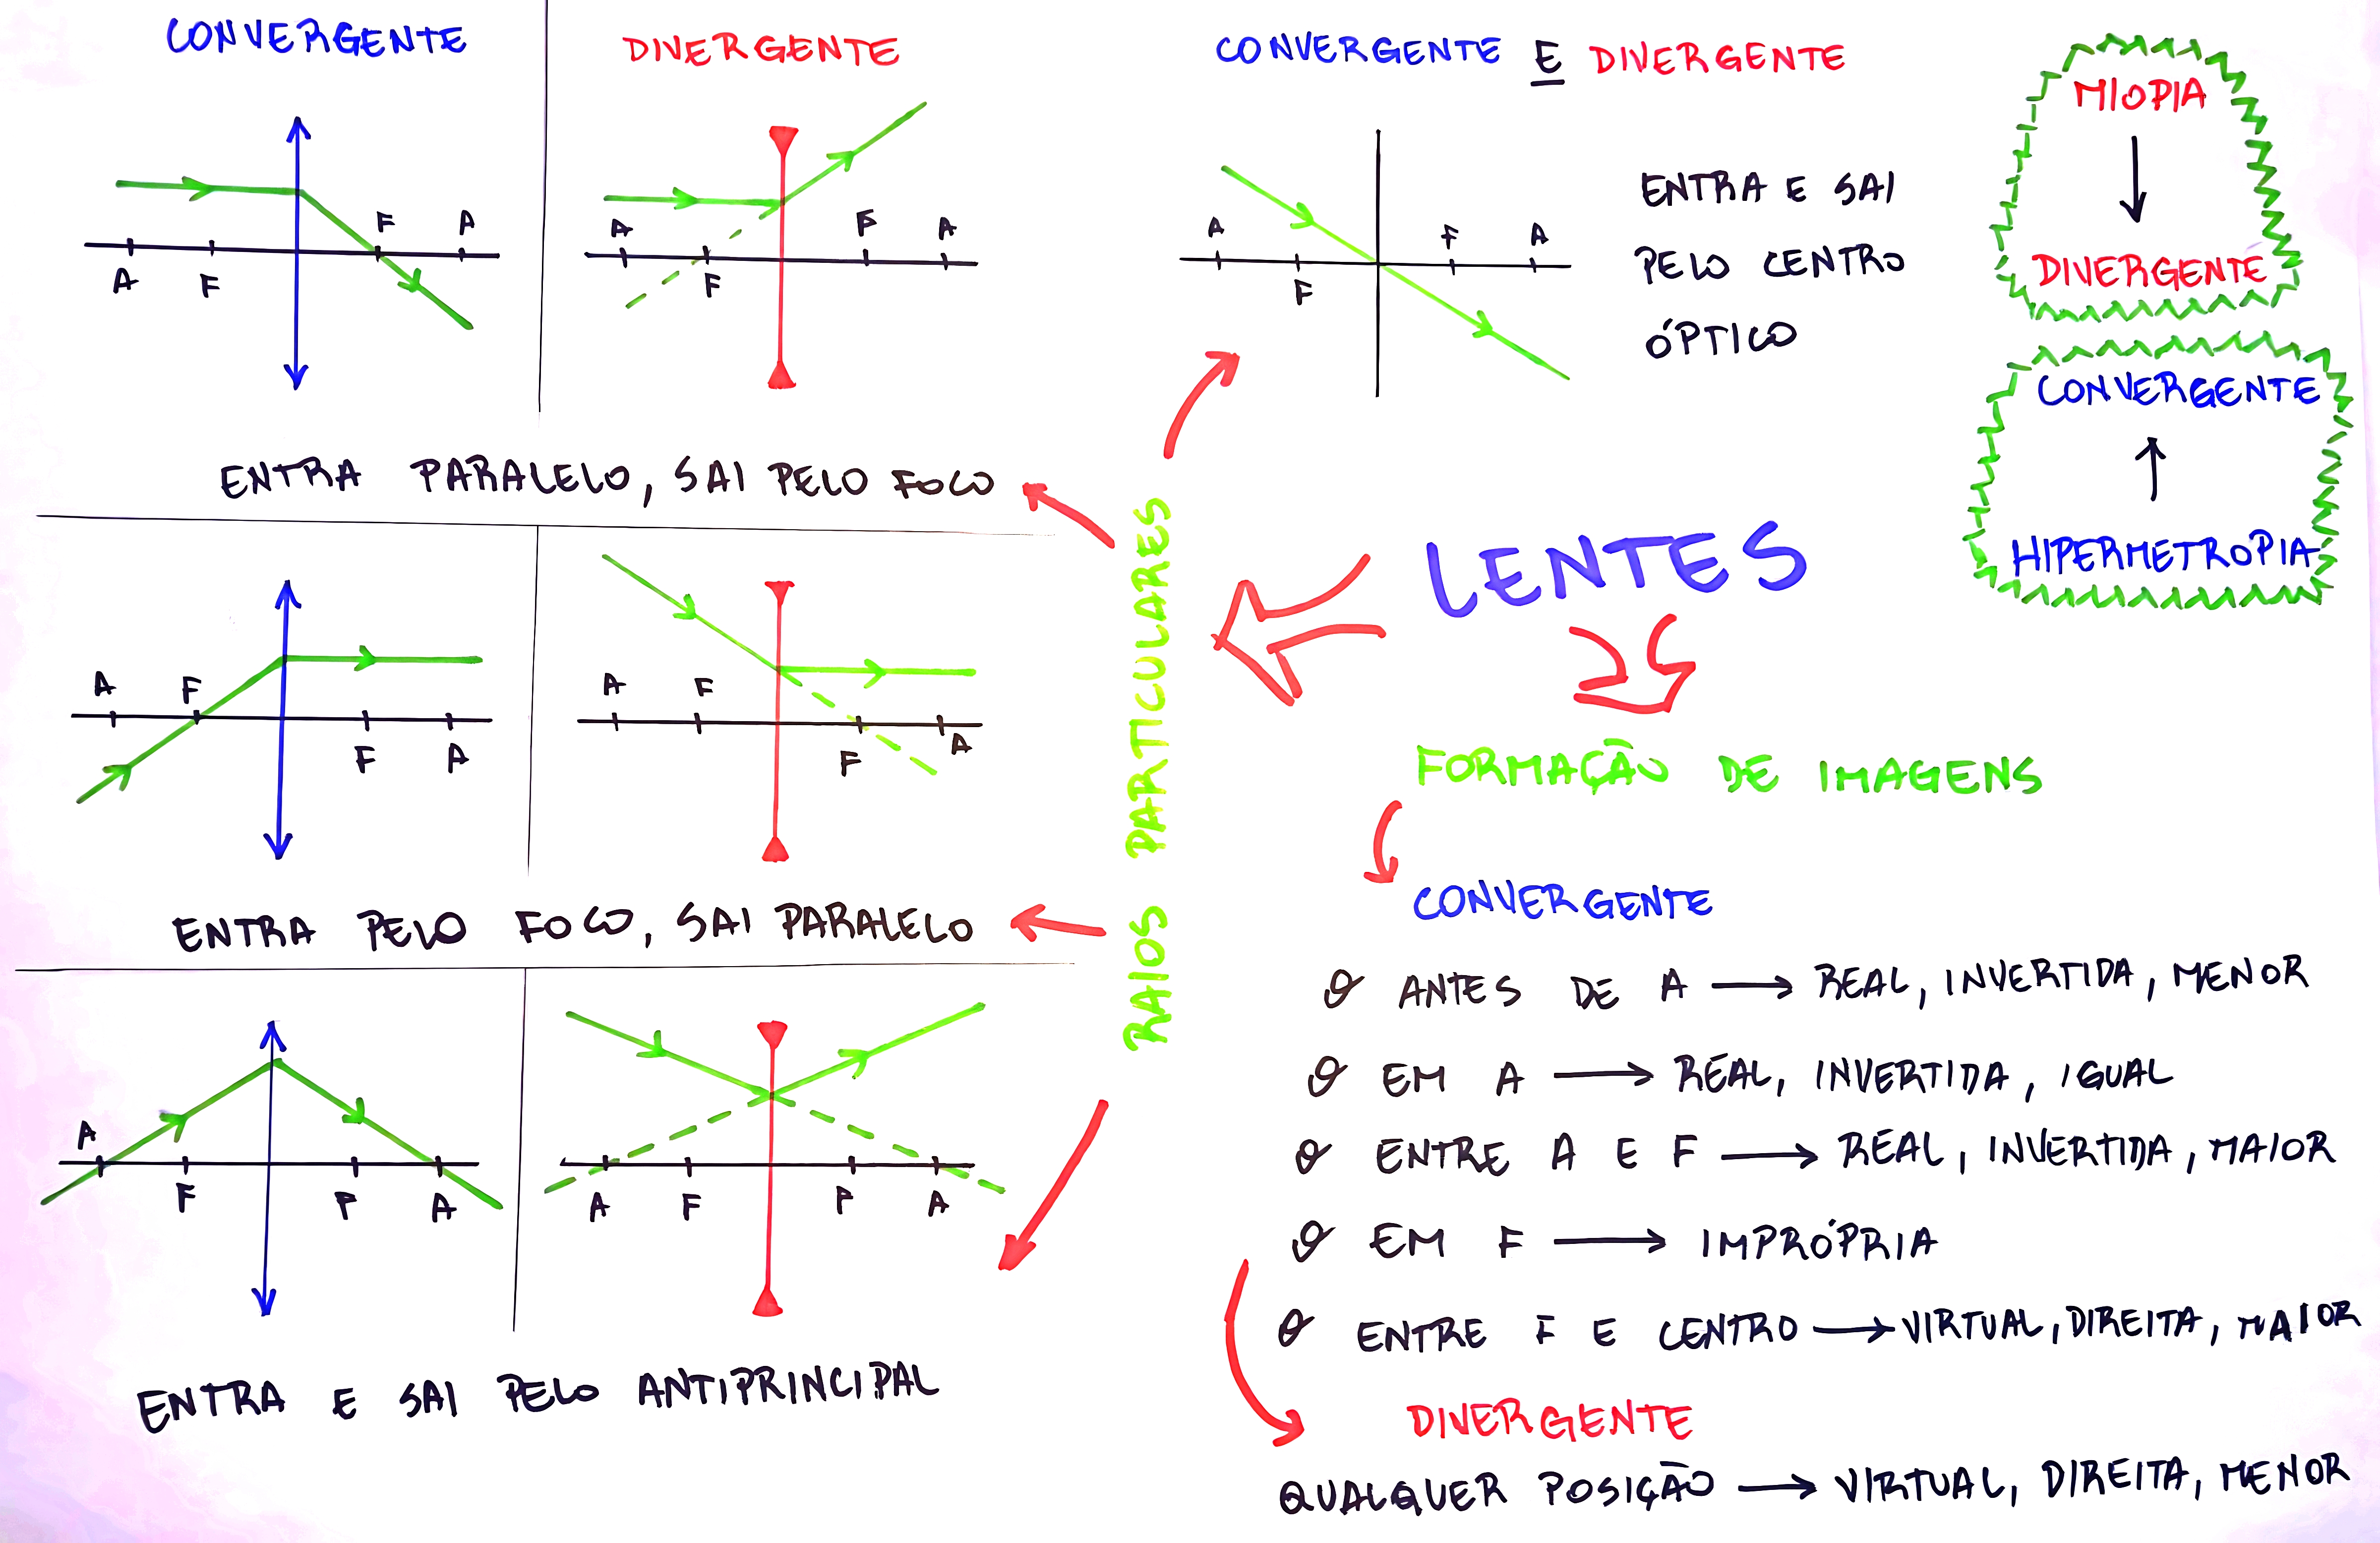 CONVERGENTE
DIVERGENTE
A
F
F
A
A
F
F
A
ENTRA PARALELO, SAI PELO FOCO
A
F
F
A
A
F
F
A
ENTRA PELO FOCO, SAI PARALELO
A
F
F
A
A
F
F
A
ENTRA E SAI PELO ANTIPRINCIPAL
RAIOS PARTICULARES
CONVERGENTE E DIVERGENTE
A
F
F
A
ENTRA E SAI
PELO CENTRO
ÓPTICO
MIOPIA
DIVERGENTE
CONVERGENTE
HIPERMETROPIA
LENTES
FORMAÇÃO DE IMAGENS
CONVERGENTE
ANTES DE A → REAL, INVERTIDA, MENOR
EM A → REAL, INVERTIDA, IGUAL
ENTRE A E F → REAL, INVERTIDA, MAIOR
EM F → IMPRÓPRIA
ENTRE F E CENTRO → VIRTUAL, DIREITA, MAIOR
DIVERGENTE
QUALQUER POSIÇÃO → VIRTUAL, DIREITA, MENOR